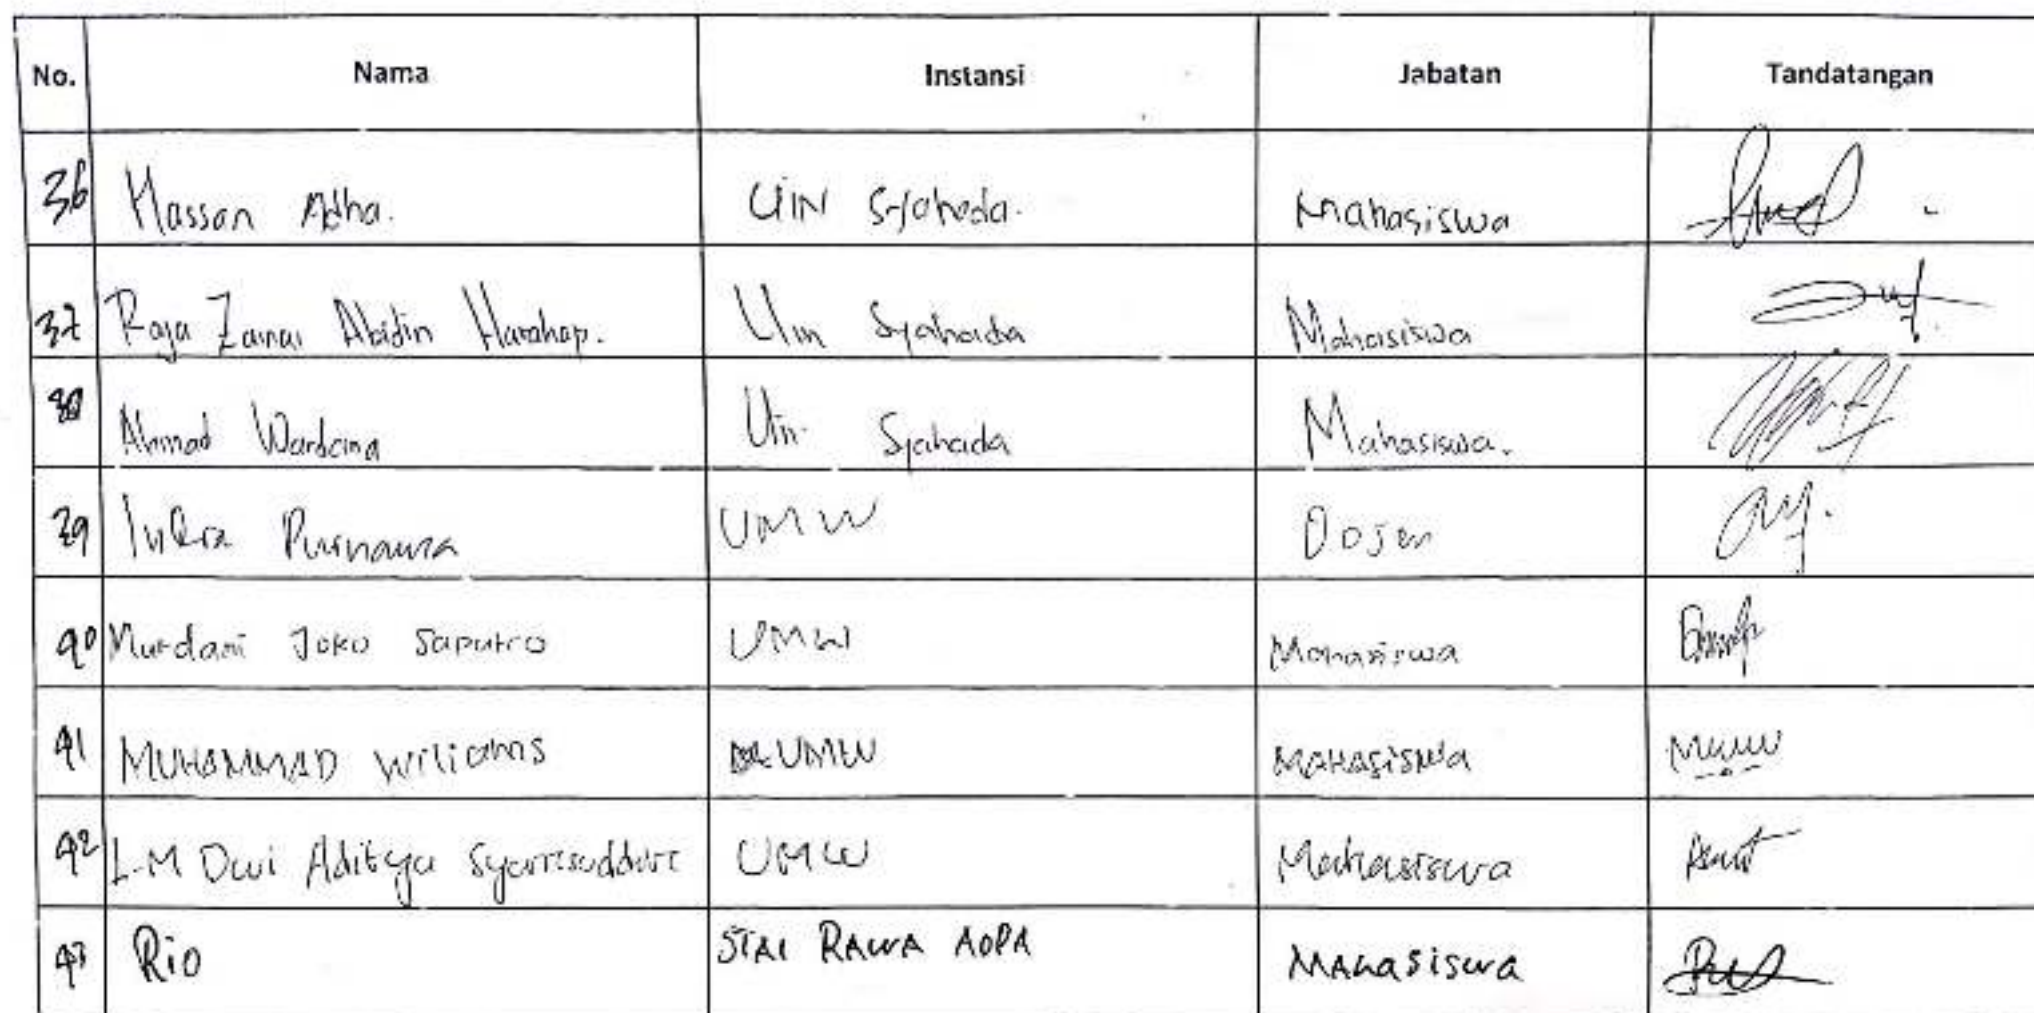 No. Nama Instansi Jabatan Tandatangan
36 Hassan Adha. UIN Syahada. Mahasiswa
37 Raja Zainal Abidin Harahap. Uin Syahada Mahasiswa
38 Ahmad Wardana Uin Syahada Mahasiswa.
39 Indra Purnawira UMW Dosen
40 Murdani Joko Saputro UMW Mahasiswa
41 MUHAMMAD Wiliams UMW MAHASISWA
42 L.M Dwi Aditya Syarifuddin UMW Mahasiswa
43 Rio STAI RAWA AOPA MAHASiswa